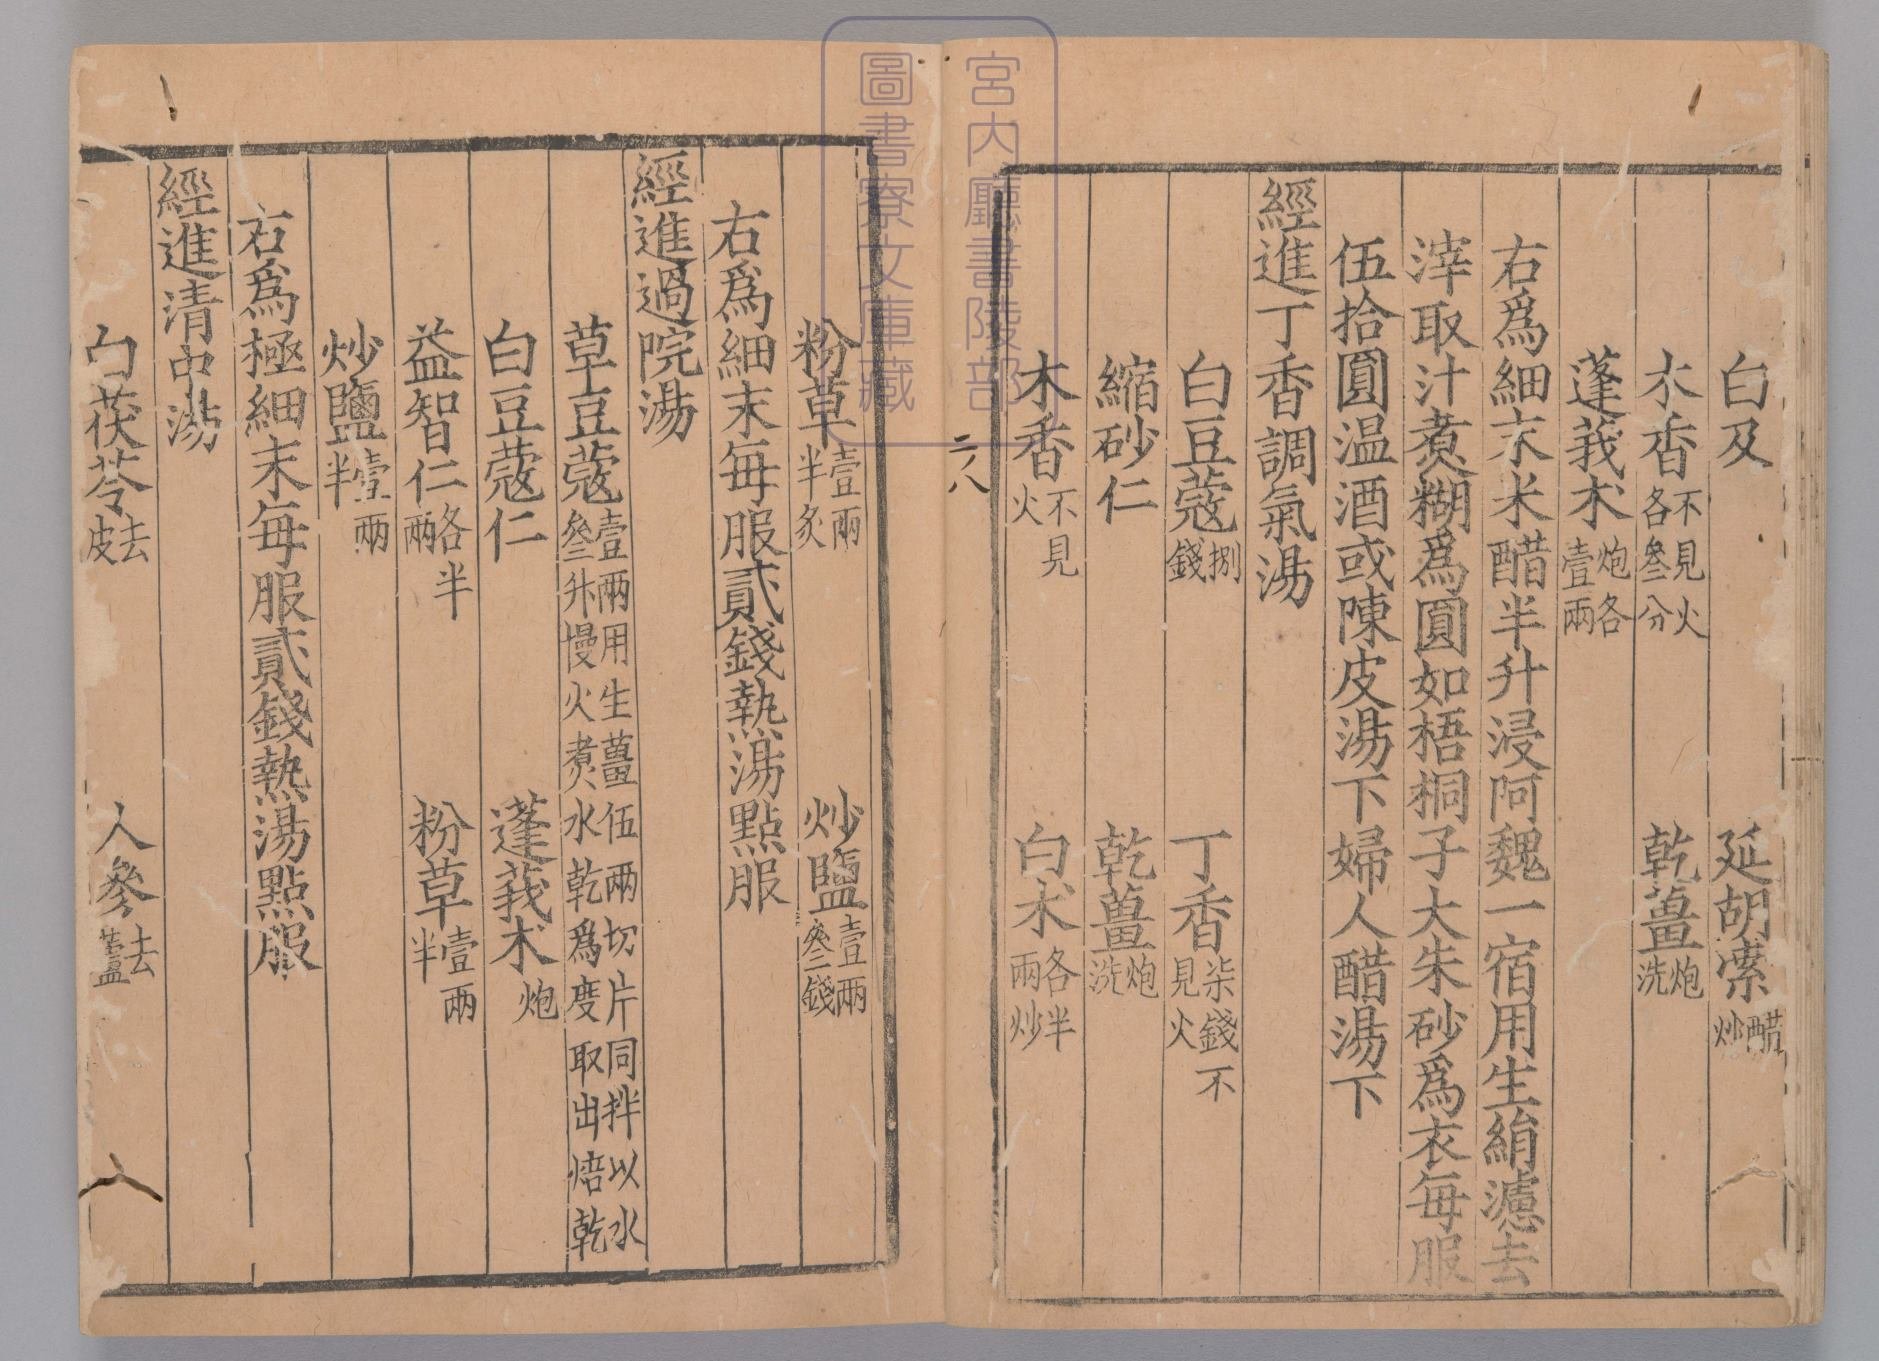 白及　延胡索醋炒
木香不見火各叄分　乾薑炮洗
蓬莪朮炮各壹兩
右爲細末米醋半升浸阿魏一宿用生絹濾去
滓取汁煑糊爲圓如梧桐子大朱砂爲衣每服
伍拾圓温酒或陳皮湯下婦人醋湯下
經進丁香調氣湯
白豆蔻捌錢　丁香柒錢不見火
縮砂仁　乾薑炮洗
木香不見火　白朮各半兩炒
二八
粉草壹兩半炙　炒鹽壹兩叄錢
右爲細末每服貳錢熱湯點服
經進過院湯
草豆蔻壹兩用生薑伍兩切片同拌以水叄升慢火煑水乾爲度取出焙乾
白豆蔻仁　蓬莪朮炮
益智仁各半兩　粉草壹兩半
炒鹽壹兩半
右爲極細末每服貳錢熱湯點服
經進清中湯
白茯苓去皮　人參去蘆
宮内廳書陵部
圖書寮文庫藏